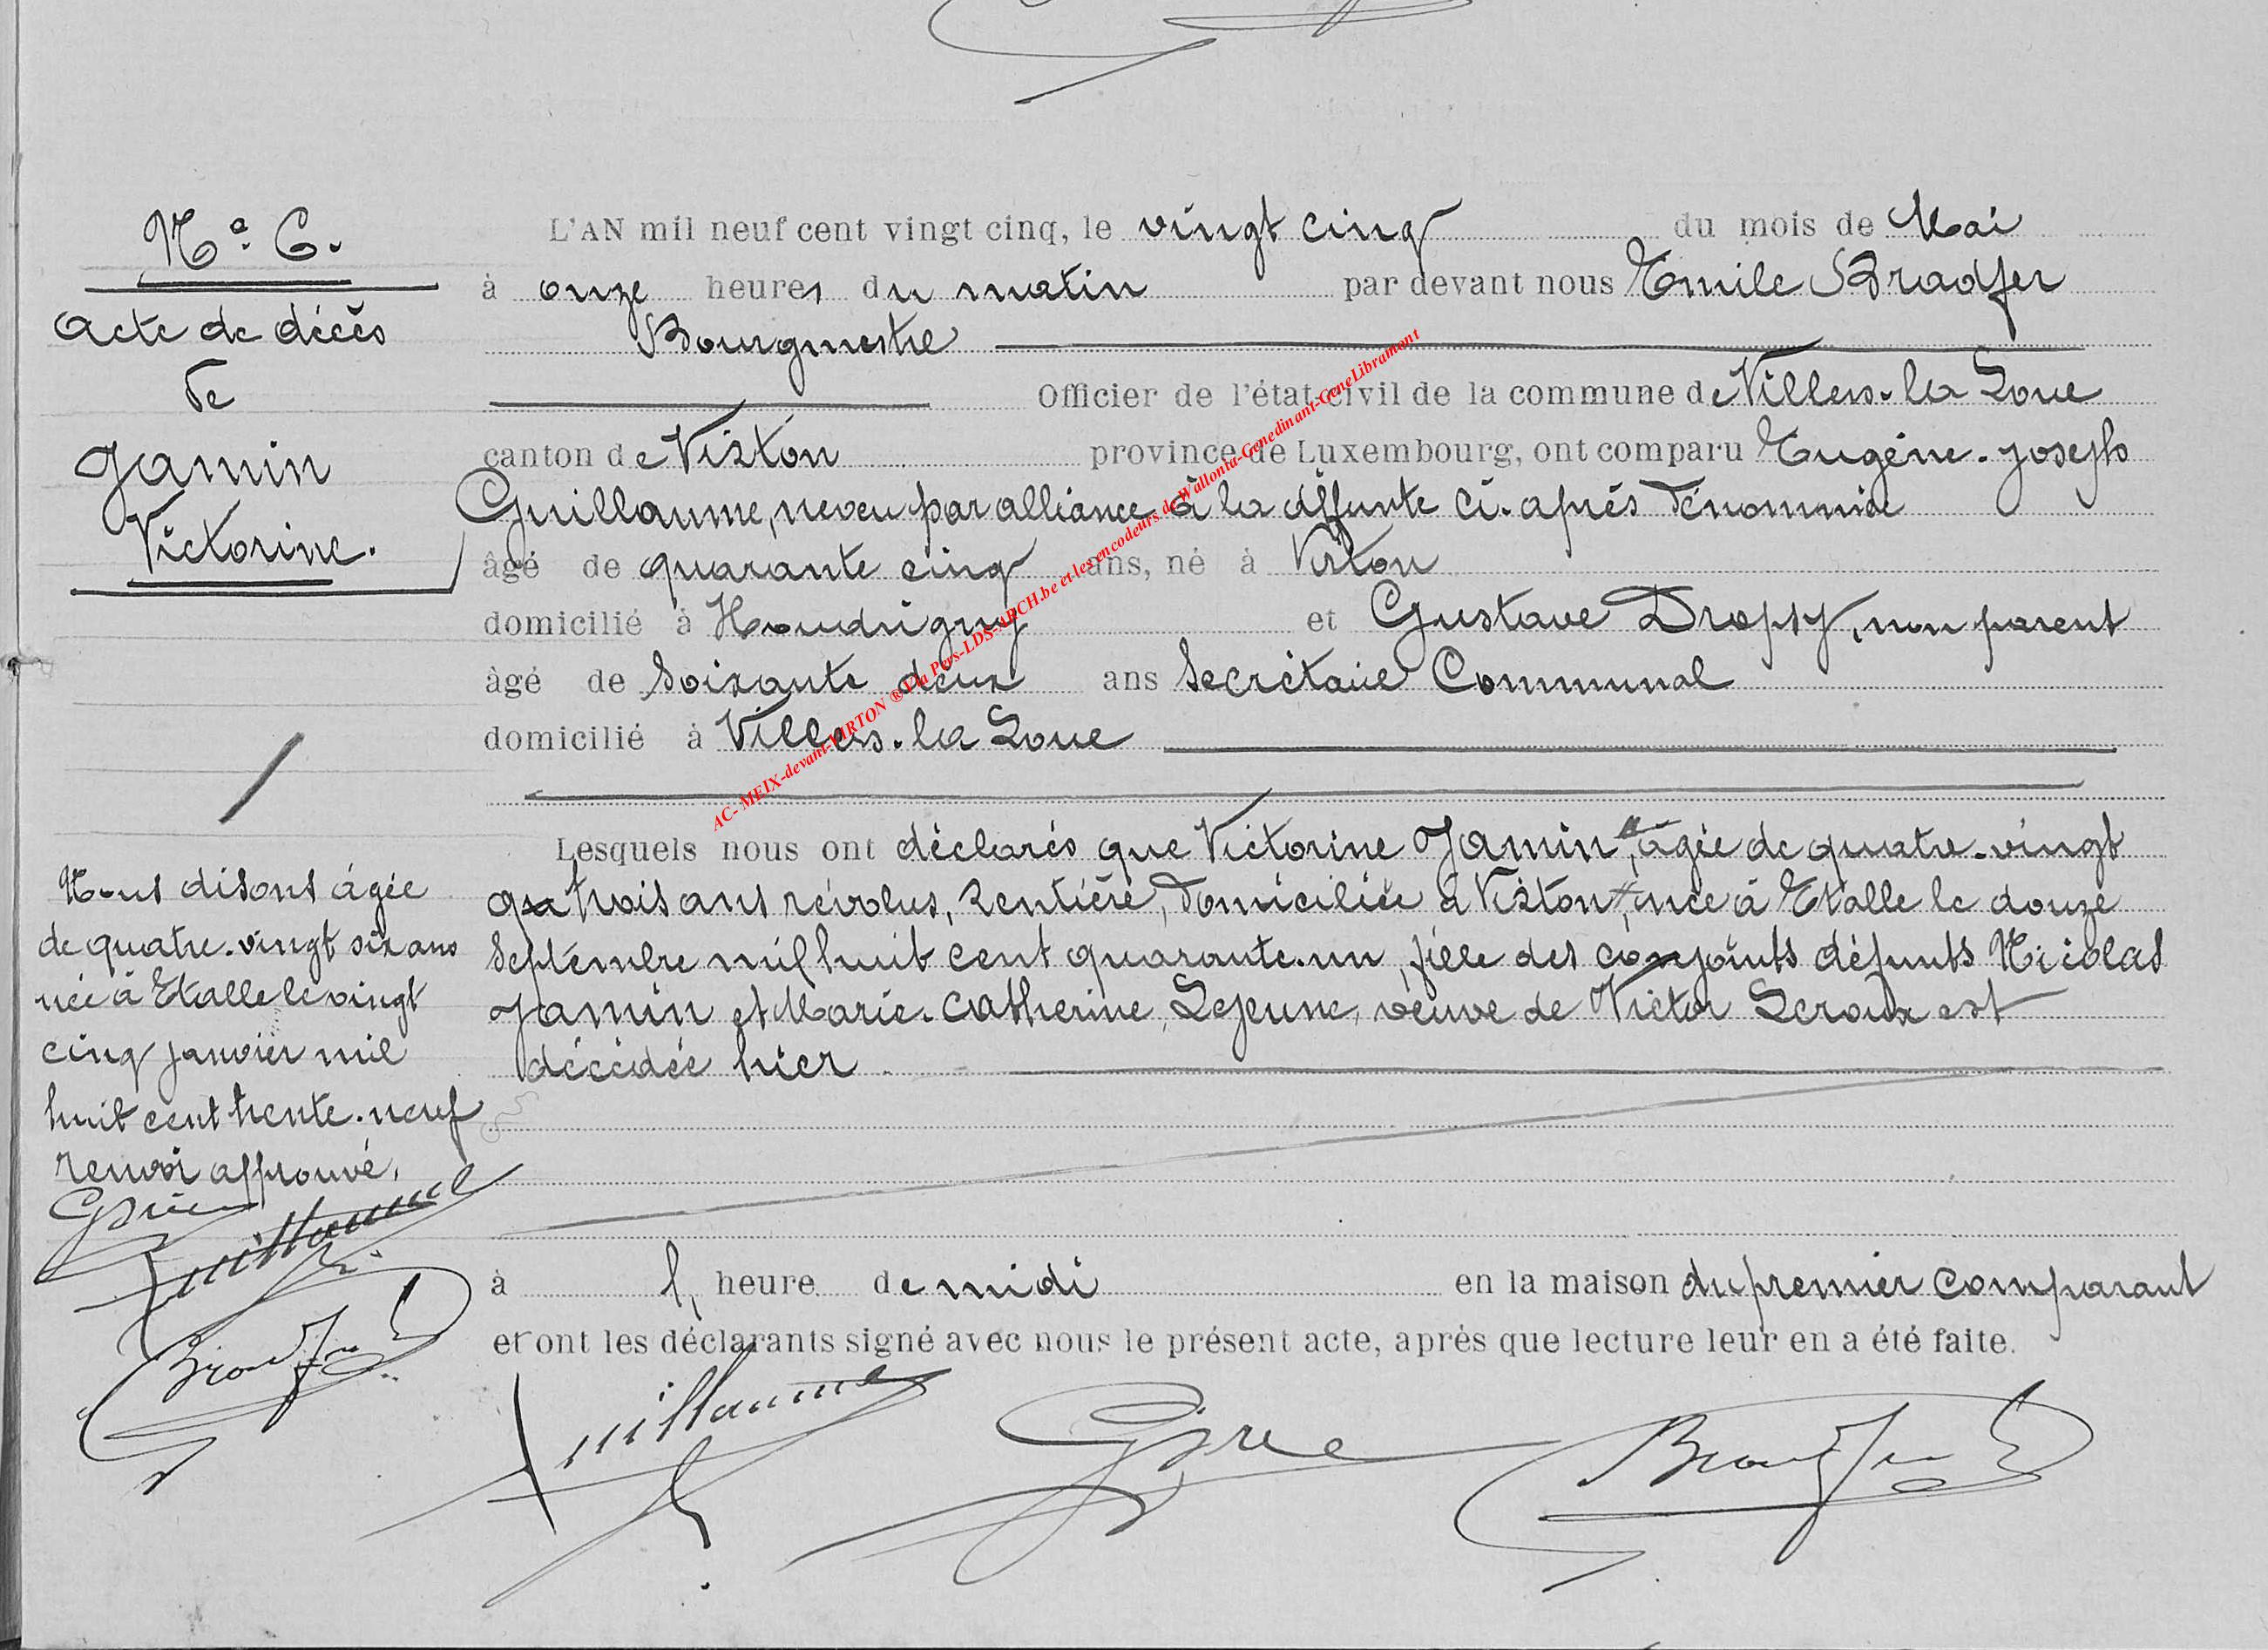 Nº 6.
Acte de décès
de
Jamin
Victorine.
L'AN mil neuf cent vingt cinq, le vingt cinq du mois de Mai
à onze heures du matin par devant nous Emile Bradfer
Bourgmestre
Officier de l'état civil de la commune de Villers-la-Loue
canton de Virton province de Luxembourg, ont comparu Eugène-Joseph
Guillaume, neveu par alliance à la défunte ci-après dénommée
âgé de quarante cinq ans, né à Virton
domicilié à Houdrigny et Gustave Dropsy, non parent
âgé de soixante deux ans Secrétaire Communal
domicilié à Villers-la-Loue
Lesquels nous ont déclarés que Victorine Jamin, âgée de quatre-vingt
trois ans révolus, rentière, domiciliée à Virton, née à Etalle le douze
Septembre mil huit cent quarante-un, fille des conjoints défunts Nicolas
Jamin et Marie-Catherine Lejeune, veuve de Victor Leroux est
décédée hier
Nous disons âgée
de quatre-vingt six ans
née à Etalle le vingt
cinq janvier mil
huit cent trente-neuf
renvoi approuvé.
Guillaume
Bradfer
à 1, heure de midi en la maison du premier comparant
et ont les déclarants signé avec nous le présent acte, après que lecture leur en a été faite.
Guillaume Bradfer
AC-MEIX-devant-VIRTON ® Via Pers-LDS-ARCH.be et les encodeurs de Wallonia-Genedinant-GeneLibramont